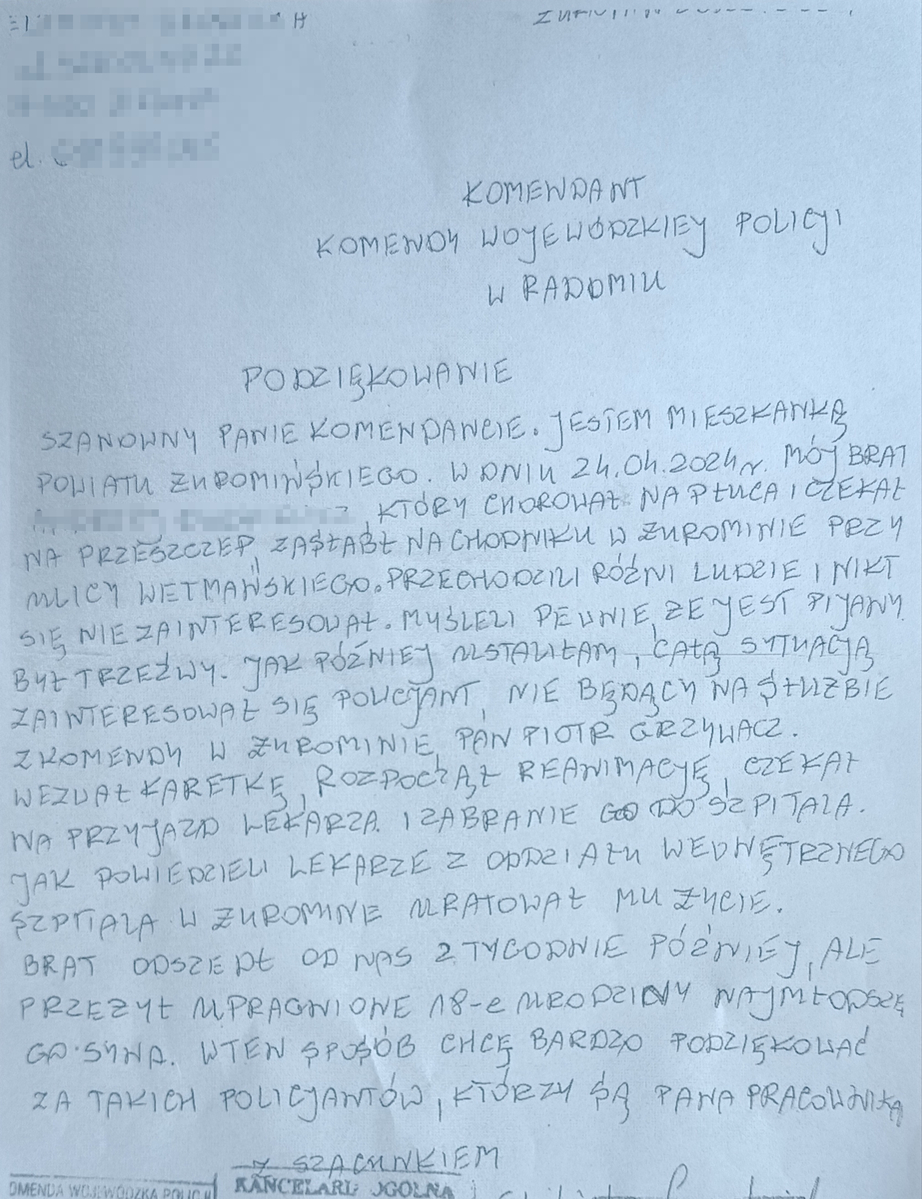 el.
KOMENDANT
KOMENDY WOJEWÓDZKIEJ POLICJI
W RADOMIU
PODZIĘKOWANIE
SZANOWNY PANIE KOMENDANCIE. JESTEM MIESZKANKĄ
POWIATU ŻUROMIŃSKIEGO. W DNIU 24.04.2024r. MÓJ BRAT
KTÓRY CHOROWAŁ NA PŁUCA I CZEKAŁ
NA PRZESZCZEP, ZASŁABŁ NA CHODNIKU W ŻUROMINIE PRZY
ULICY WETMAŃSKIEGO. PRZECHODZILI RÓŻNI LUDZIE I NIKT
SIĘ NIE ZAINTERESOWAŁ. MYŚLELI PEWNIE, ŻE JEST PIJANY.
BYŁ TRZEŹWY. JAK PÓŹNIEJ USTALIŁAM, CAŁĄ SYTUACJĄ
ZAINTERESOWAŁ SIĘ POLICJANT, NIE BĘDĄCY NA SŁUŻBIE
Z KOMENDY W ŻUROMINIE, PAN PIOTR GRZYWACZ.
WEZWAŁ KARETKĘ, ROZPOCZĄŁ REANIMACJĘ, CZEKAŁ
NA PRZYJAZD LEKARZA I ZABRANIE GO DO SZPITALA.
JAK POWIEDZIELI LEKARZE Z ODDZIAŁU WEWNĘTRZNEGO
SZPITALA W ŻUROMINE URATOWAŁ MU ŻYCIE.
BRAT ODSZEDŁ OD NAS 2 TYGODNIE PÓŹNIEJ, ALE
PRZEŻYŁ UPRAGNIONE 18-e URODZINY NAJMŁODSZE
GO SYNA. W TEN SPOSÓB CHCĘ BARDZO PODZIĘKOWAĆ
ZA TAKICH POLICJANTÓW, KTÓRZY SĄ PANA PRACOWNIKĄ
Z SZACUNKIEM
KOMENDA WOJEWÓDZKA POLICJI